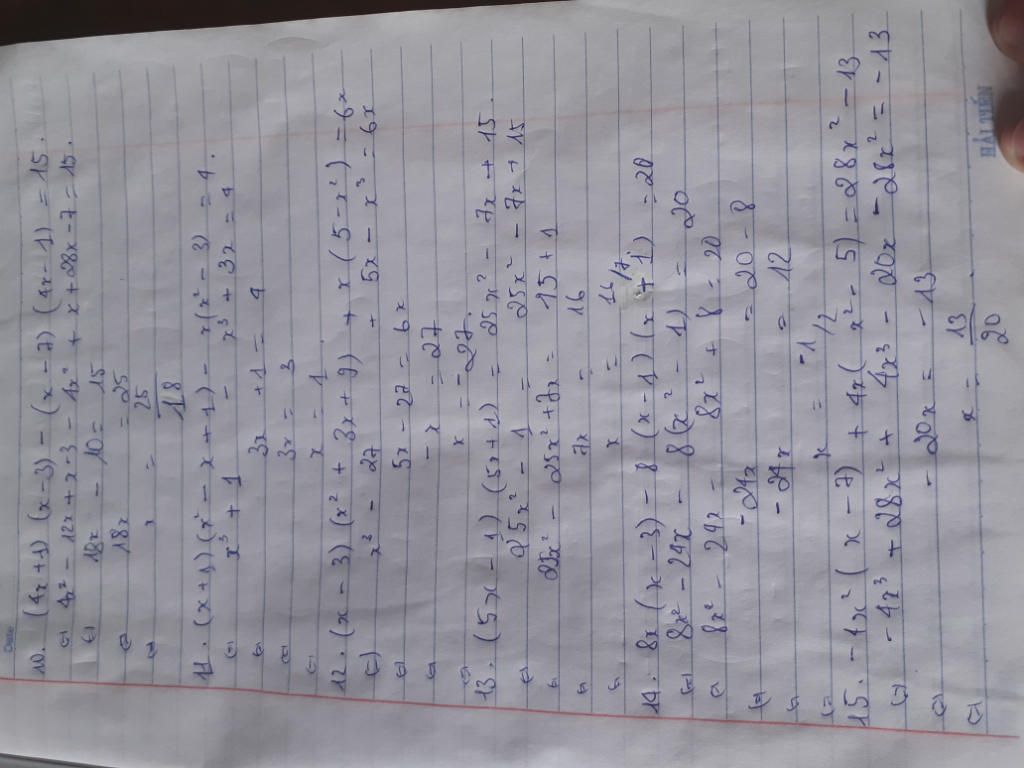 Date
10. (4x+1)(x-3) - (x-7)(4x-1) = 15.
⇔ 4x² - 12x + x - 3 - 4x² + x + 28x - 7 = 15.
⇔ 18x - 10 = 15
⇔ 18x = 25
⇔ x = 25/18
11. (x+1)(x² - x + 1) - x(x² - 3) = 4.
⇔ x³ + 1 - x³ + 3x = 4
⇔ 3x + 1 = 4
⇔ 3x = 3
⇔ x = 1
12. (x - 3)(x² + 3x + 9) + x(5 - x²) = 6x
⇔ x³ - 27 + 5x - x³ = 6x
⇔ 5x - 27 = 6x
⇔ - x = 27
⇔ x = - 27.
13. (5x - 1)(5x + 1) = 25x² - 7x + 15.
⇔ 25x² - 1 = 25x² - 7x + 15
⇔ 25x² - 25x² + 7x = 15 + 1
⇔ 7x = 16
⇔ x = 16/7
14. 8x(x - 3) - 8(x - 1)(x + 1) = 20
⇔ 8x² - 24x - 8(x² - 1) = 20
⇔ 8x² - 24x - 8x² + 8 = 20
⇔ - 24x = 20 - 8
⇔ - 24x = 12
⇔ x = -1/2
15. - 4x²(x - 7) + 4x(x² - 5) = 28x² - 13
⇔ - 4x³ + 28x² + 4x³ - 20x - 28x² = - 13
⇔ - 20x = - 13
⇔ x = 13/20
HẢI TIẾN